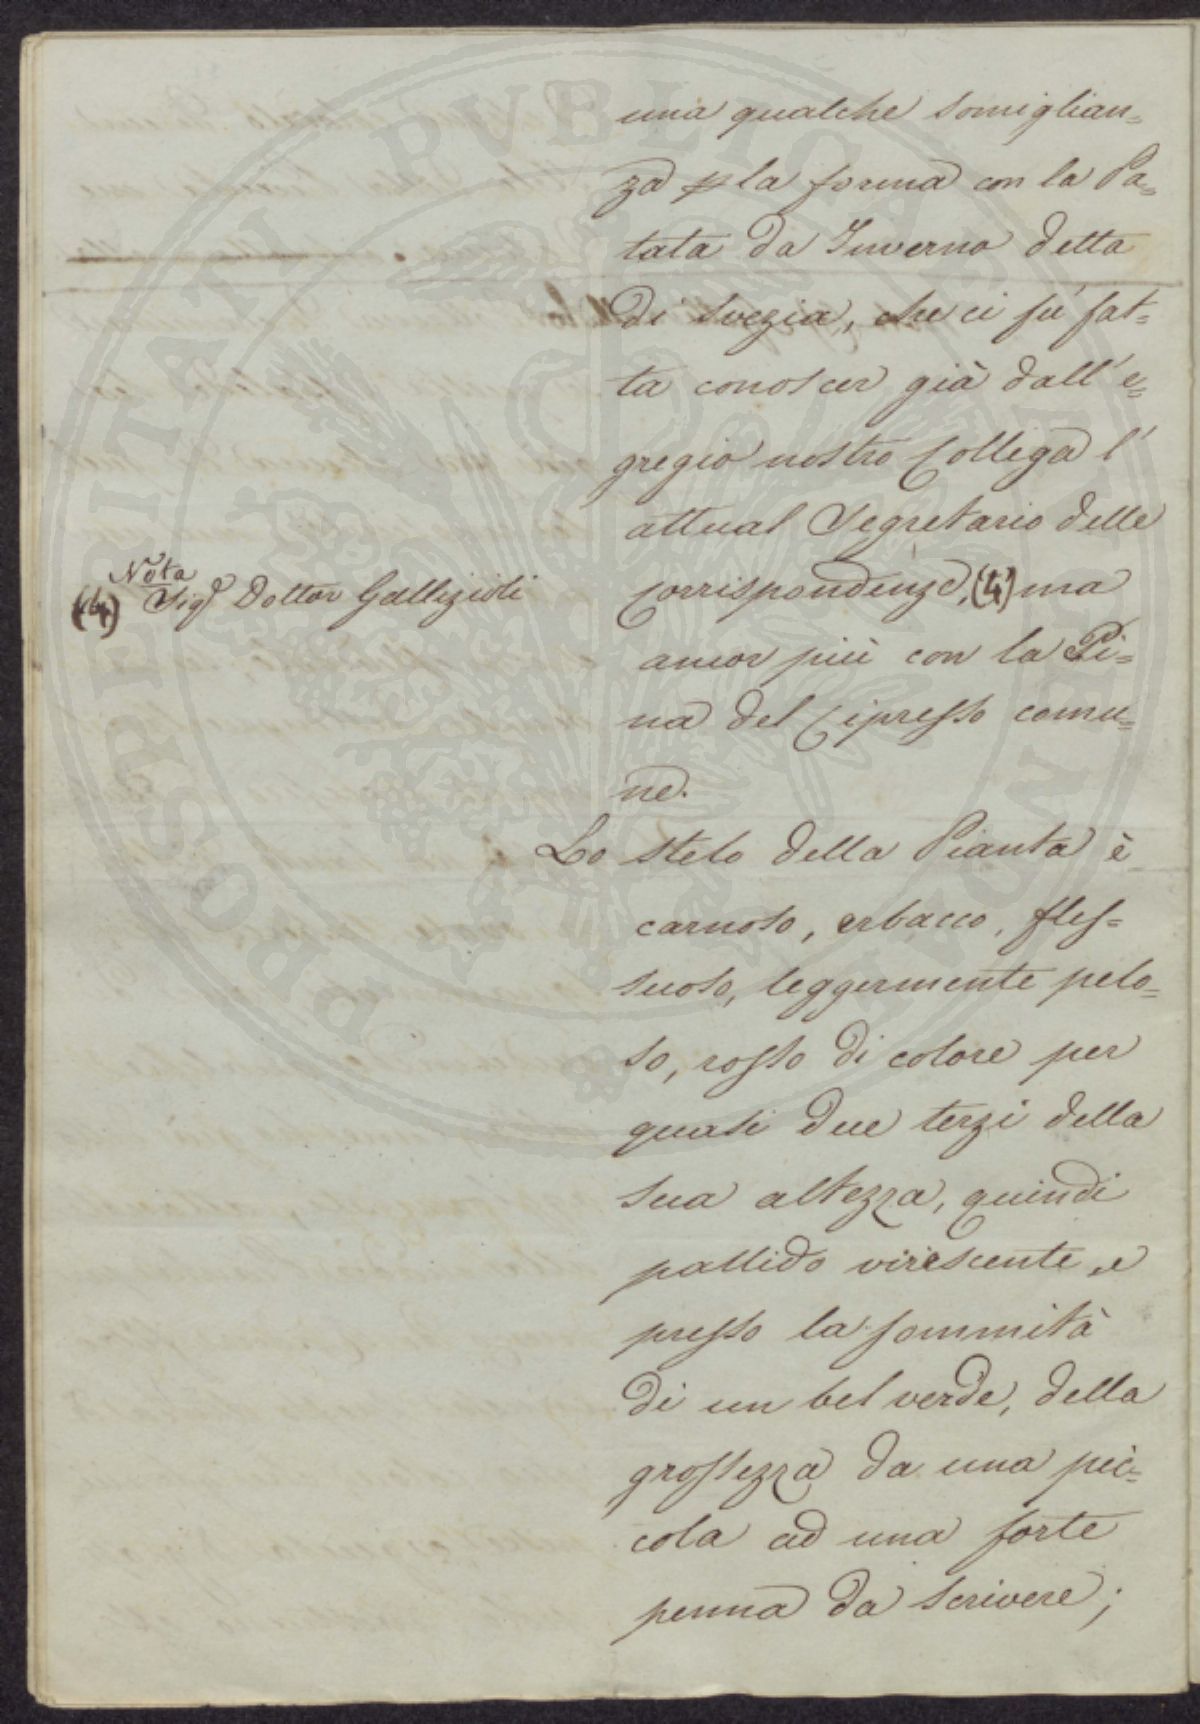 una qualche somiglian=
za p la forma con la Pa=
tata da Inverno detta
di Svezia, che ci fù fat=
ta conoscer già dall'e=
gregio nostro Collega l'
attual Segretario delle
Corrispondenze, (4) ma
Nota
(4) Sigr Dottor Gallizioli
ancor più con la Pi=
na del Cipresso comu=
ne.
Lo stelo della Pianta è
carnoso, erbaceo, fles=
suoso, leggermente pelo=
so, rosso di colore per
quasi due terzi della
sua altezza, quindi
pallido virescente, e
presso la sommità
di un bel verde, della
grossezza da una pic=
cola ad una forte
penna da scrivere;
PROSPERITATI PVBLICAE